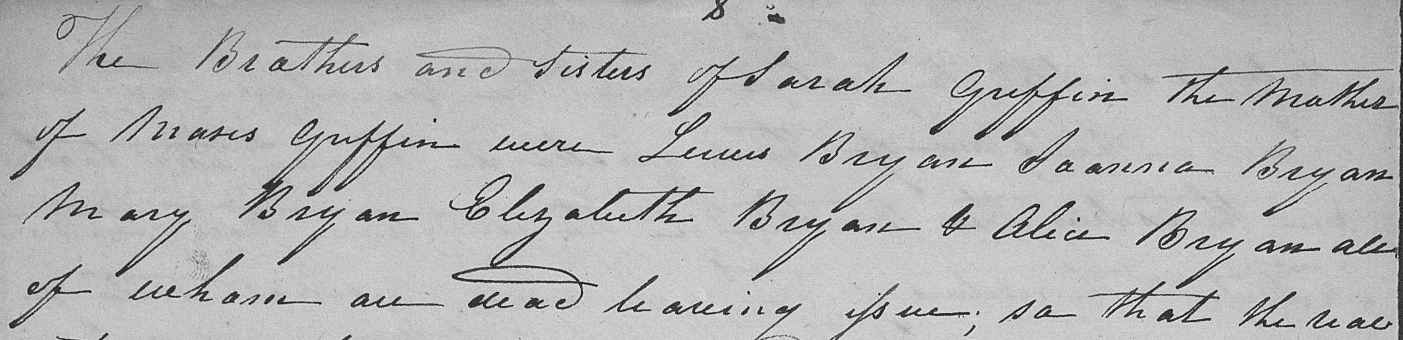 8
The Brothers and Sisters of Sarah Griffin the Mother
of Moses Griffin were Lewis Bryan Joanna Bryan
Mary Bryan Elizabeth Bryan & Alice Bryan all
of whom are dead leaving issue; so that the real